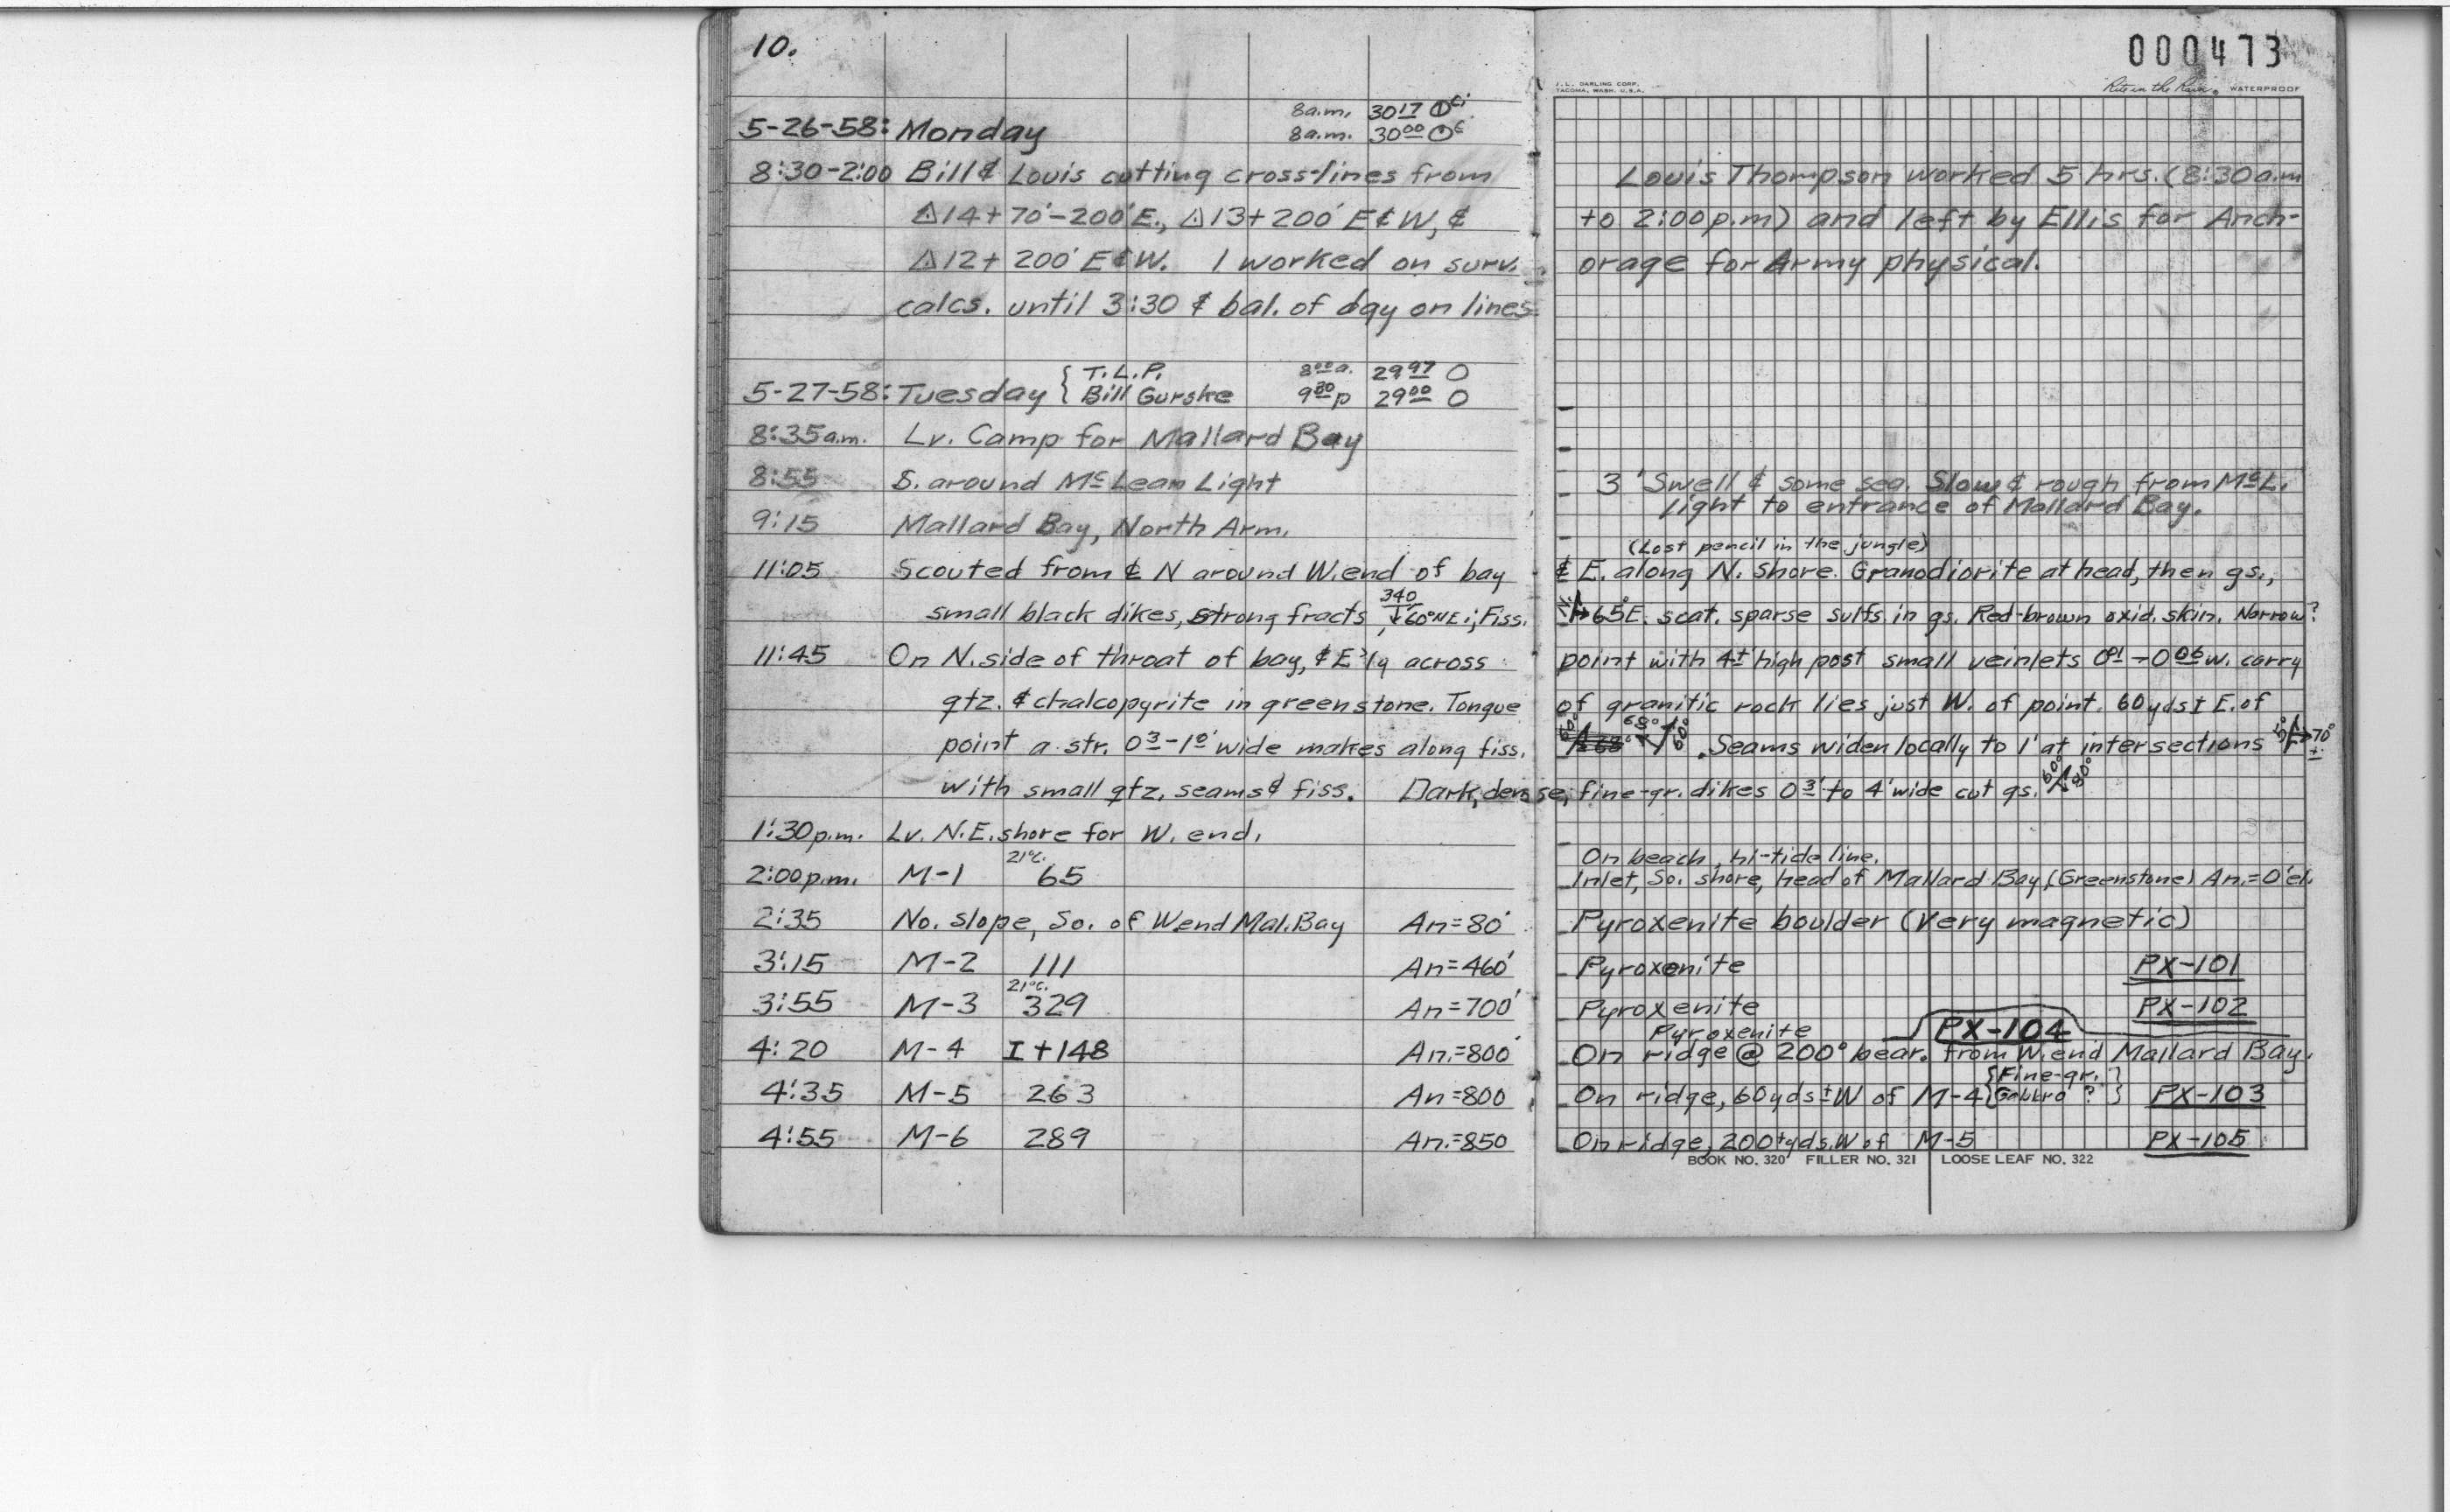 10.
8a.m. 30 17
5-26-58: Monday 8a.m. 30 00
8:30-2:00 Bill & Louis cutting cross-lines from
△14+70'-200'E., △13+200' E&W, &
△12+200' E&W. I worked on surv.
calcs. until 3:30 & bal. of day on lines
T.L.P. 8 00 a. 29 97 O
5-27-58: Tuesday { Bill Gurske 9 30 p 29 00 O
8:35a.m. Lv. Camp for Mallard Bay
8:55 S. around McLean Light
9:15 Mallard Bay, North Arm.
11:05 Scouted from & N around W. end of bay
small black dikes, strong fracts, 340 60°NE; Fiss.
11:45 On N. side of throat of bay, & E'ly across
qtz. & chalcopyrite in greenstone. Tongue
point a str. 0 3 - 1 0' wide makes along fiss.
with small qtz. seams & fiss. Dark, dense,
1:30p.m. Lv. N.E. shore for W. end.
21°C.
2:00p.m. M-1 65
2:35 No. slope, So. of W end Mal. Bay An=80'
3:15 M-2 111 An=460'
21°C.
3:55 M-3 329 An=700'
4:20 M-4 I+148 An.=800'
4:35 M-5 263 An=800
4:55 M-6 289 An.=850
000473
J. L. DARLING CORP.
TACOMA, WASH. U.S.A.
Rite in the Rain WATERPROOF
Louis Thompson worked 5 hrs. (8:30a.m
to 2:00p.m) and left by Ellis for Anch-
orage for Army physical.
3' Swell & some sea. Slow & rough from McL.
light to entrance of Mallard Bay.
(Lost pencil in the jungle)
& E. along N. shore. Granodiorite at head, then gs.,
65°E. scat. sparse sulfs. in gs. Red-brown oxid. skin. Narrow?
point with 4'± high post small veinlets 0 01 - 0 06 w. carry
of granitic rock lies just W. of point. 60yds± E. of
68° 60° . Seams widen locally to 1' at intersections 70° ±
fine-gr. dikes 0 3' to 4' wide cut gs. 60° 80°
On beach, hi-tide line.
Inlet, So. shore, head of Mallard Bay, (Greenstone) An.=0'el.
Pyroxenite boulder (very magnetic)
Pyroxenite PX-101
Pyroxenite PX-102
Pyroxenite PX-104
On ridge @ 200° bear. from W. end Mallard Bay.
On ridge, 60yds± W of M-4 {Fine-gr. Gabbro ?} PX-103
On ridge, 200±yds. W of M-5 PX-105
BOOK NO. 320 FILLER NO. 321 LOOSE LEAF NO. 322